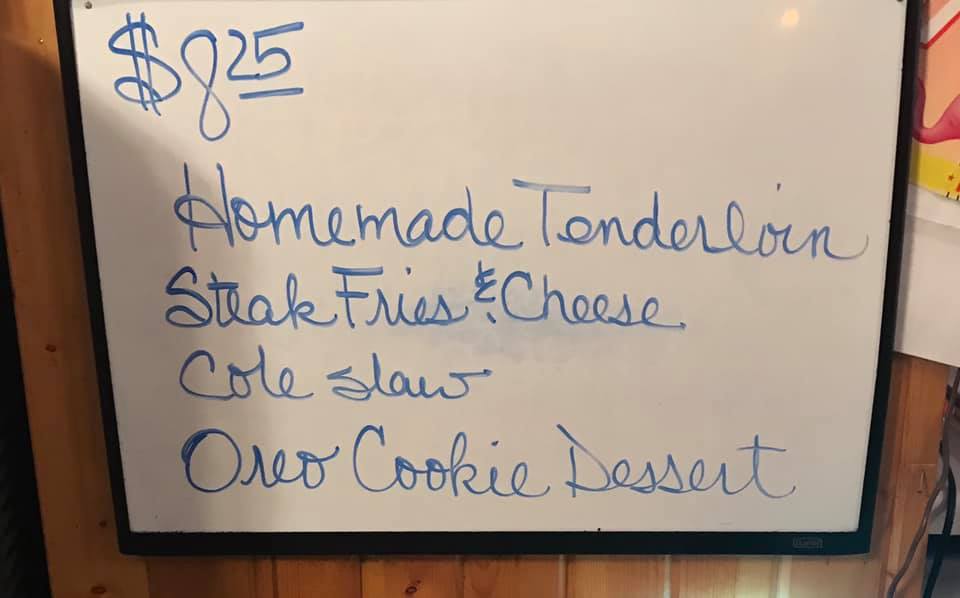 $8 25
Homemade Tenderloin
Steak Fries & Cheese
Cole slaw
Oreo Cookie Dessert